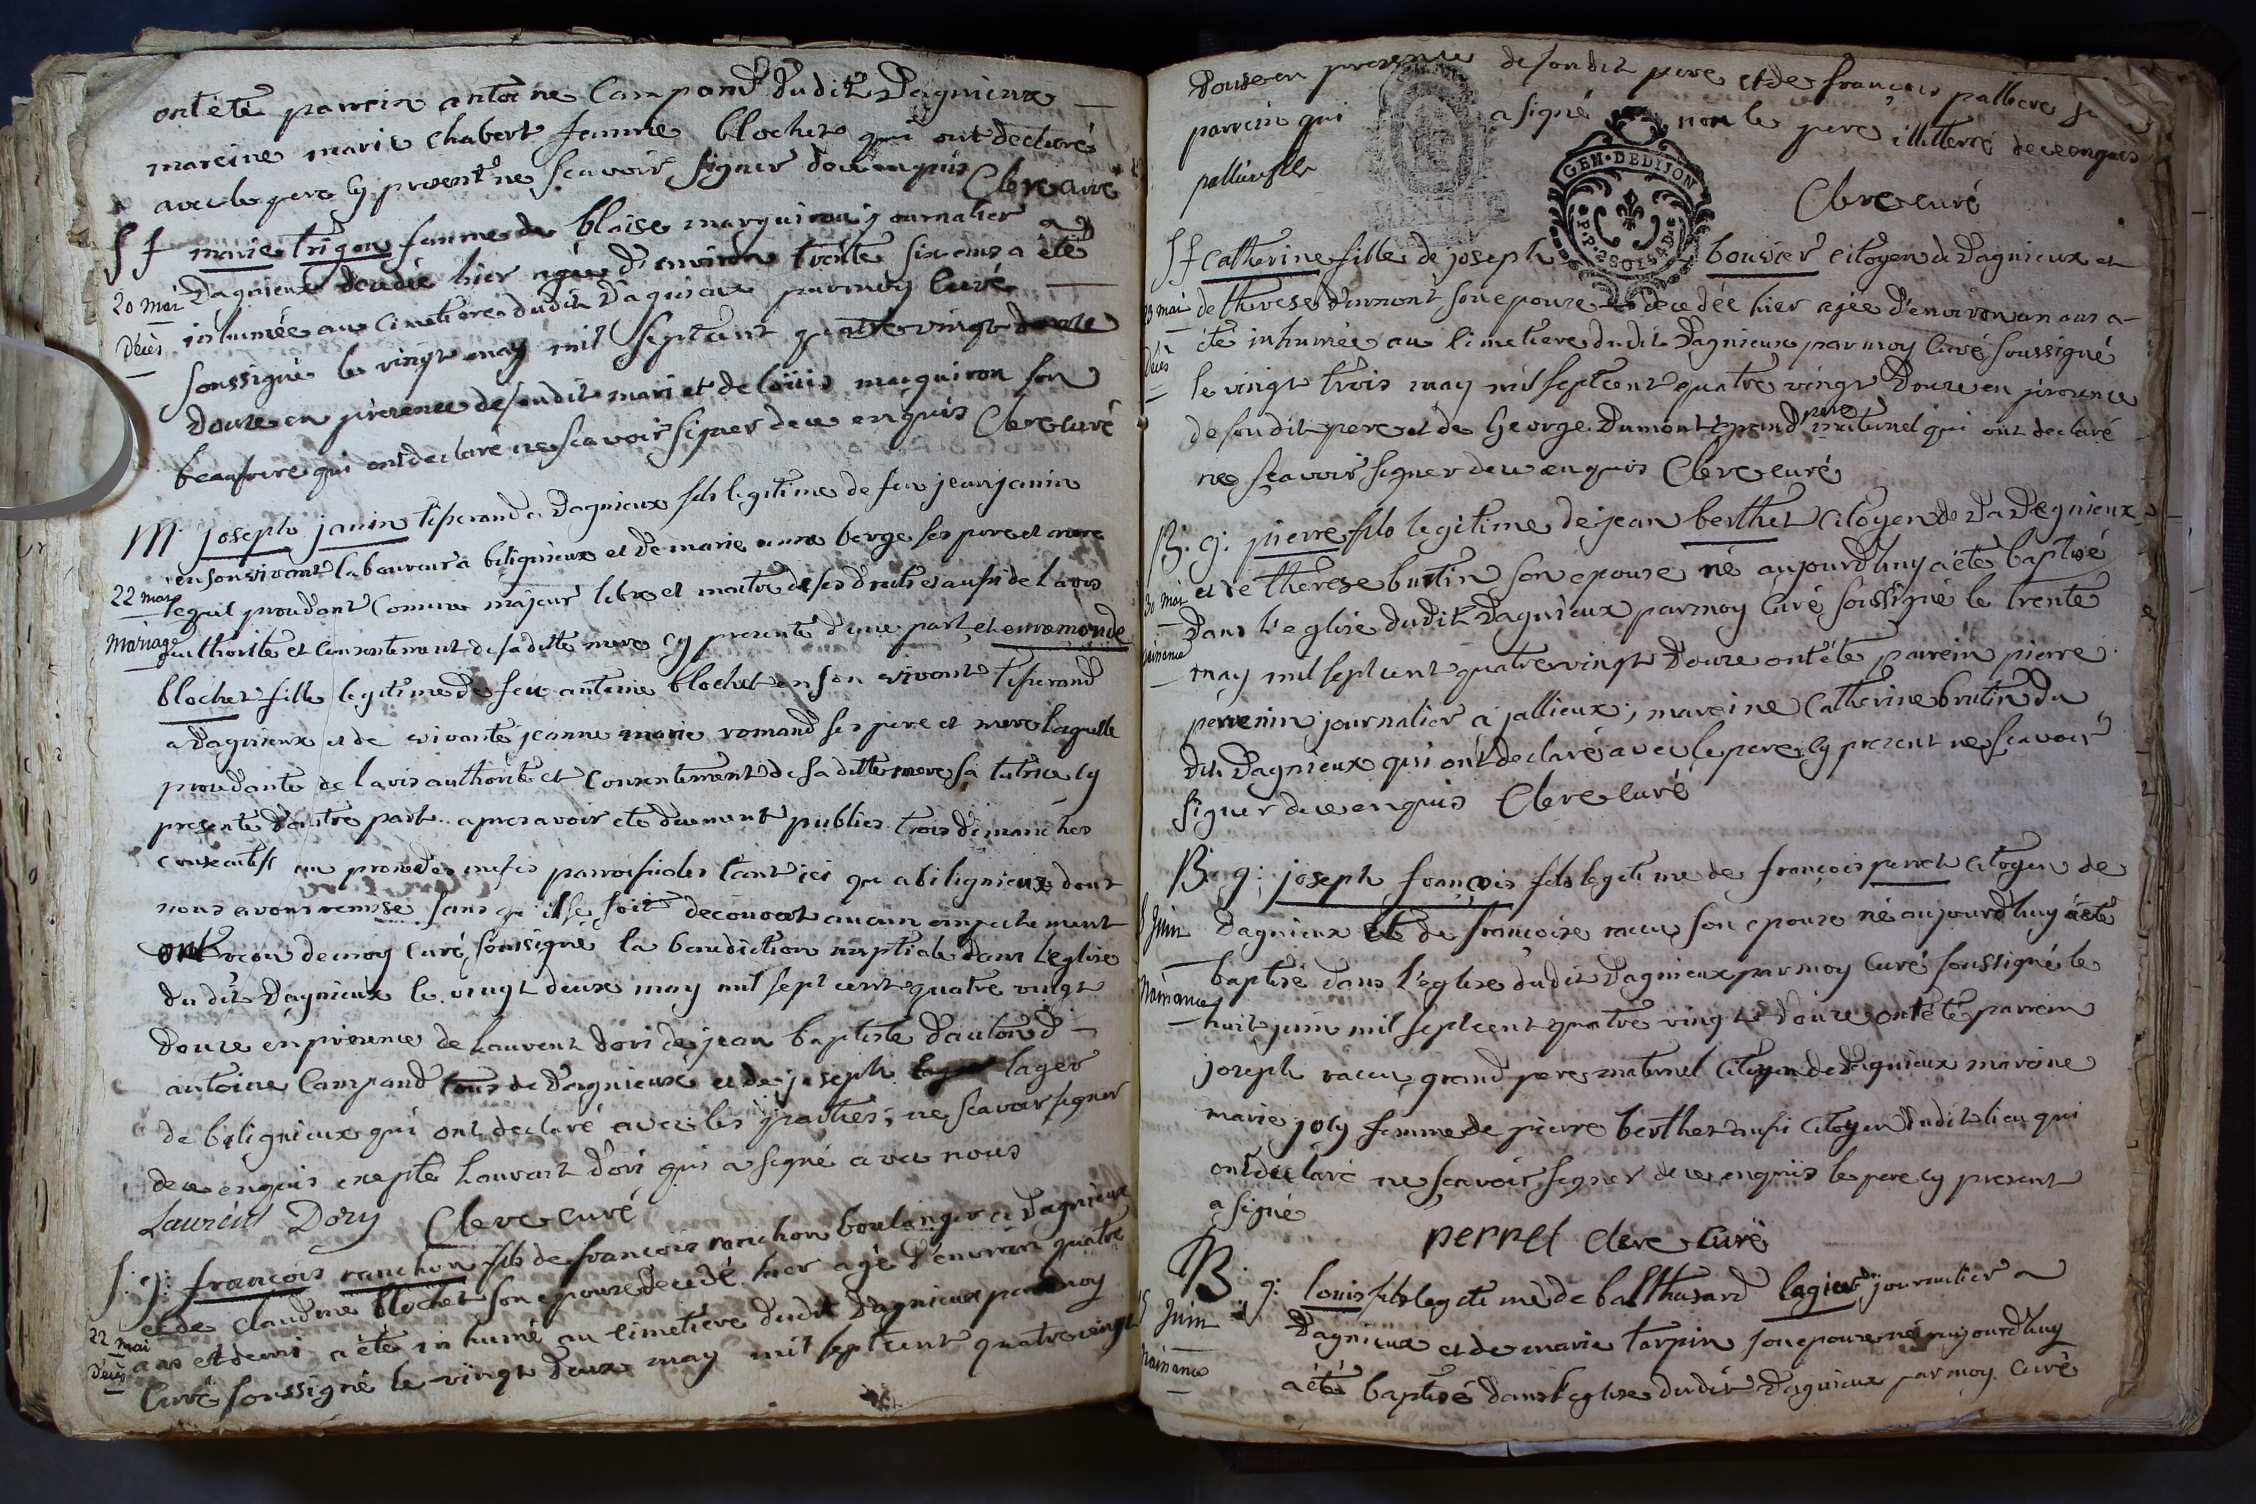 ont été parrein antoine Campand dudit Dagnieux
mareine marie Chabert femme blochet qui ont declaré
avec le pere cy present ne scavoir signer de ce enquis Clere curé
S f marie trigon femme de blaise marquiron journalier a
20 mai Dagnieux decedée hier agée d'environ trente six ans a été
Décès inhumée au cimetiere dudit Dagnieux par moy Curé
soussigné le vingt may mil sept cent quatre vingt
douze en presence de sondit mari et de loüis marquiron son
beaufrere qui ont declaré ne scavoir signer de ce enquis Clere curé
M joseph janin tisserand a Dagnieux fils legitime de feu jean janin
en son vivant laboureur a béligneux et de marie anne berge ses pere et mere
22 mai lequel procedant comme majeur libre et maitre de ses droits et aussi de l'avis
Mariage authorité et consentement de sa ditte mere cy presente d'une part et enremonde
blochet fille legitime de feu antoine blochet en son vivant tisserand
a Dagnieux et de vivante jeanne marie romand ses pere et mere laquelle
procedante de l'avis authorité et consentement de sa ditte mere sa tutrice cy
presente d'autre part apres avoir eté duement publiés trois dimanches
consecutifs au prones des messes parroissiales tant ici qu'a bilignieux dont
nous avons remise sans qu'il se soit decouvert aucun empechement
ont recu de moy Curé soussigné la benediction nuptiale dans l'eglise
du dit Dagnieux le vingt deux may mil sept cent quatre vingt
douze en presence de Laurent dori de jean baptiste dautond
antoine Campand tous de Dagnieux et de joseph lager
de bilignieux qui ont declaré avec les parties, ne scavoir signer
de ce enquis excepté Laurent dori qui a signé avec nous
Laurent Dory Clere curé
S. g: françois ranchon fils de françois ranchon boulanger a Dagnieux
et de claudine blochet son epouse decedé hier agé d'environ quatre
22 mai ans et demi a été inhumé au cimetiere dudit Dagnieux par moy
Décès Curé soussigné le vingt deux may mil sept cent quatre vingt
douze en presence de sondit pere et de françois palliere
parrein qui a signé non le pere illitteré de ce enquis
Clere curé
GEN. DEDIJON
S f Catherine fille de joseph bouvier citoyen de Dagnieux et
23 mai de therese dumont son epouse decedée hier agée d'environ un an a
été inhumée au cimetiere dudit Dagnieux par moy Curé soussigné
Décès le vingt trois may mil sept cent quatre vingt douze en presence
de son dit pere et de George Dumont grand pere maternel qui ont declaré
ne scavoir signer de ce enquis Clere curé
B. g: pierre fils legitime de jean berthet citoyen de Dagnieux
30 mai et de therese brutin son epouse né aujourd'huy a été baptisé
Naissance dans l'eglise dudit Dagnieux par moy Curé soussigné le trente
may mil sept cent quatre vingt douze ont été parrein pierre
perrenin journalier a jallieux, mareine Catherine brutin du
dit Dagnieux qui ont declaré avec le pere cy present ne scavoir
signer de ce enquis Clere curé
B. g: joseph françois fils legitime de françois perret citoyen de
8 Juin Dagnieux et de françoise racu son epouse né aujourd'huy a été
Naissance baptisé dans l'eglise dudit Dagnieux par moy Curé soussigné le
huit juin mil sept cent quatre vingt douze ont été parrein
joseph racu grand pere maternel citoyen de Dagnieux mareine
marie joly femme de pierre berthet aussi citoyen dudit lieu qui
ont declaré ne scavoir signer de ce enquis le pere cy present
a signé
perret Clere curé
B. g: louis fils legitime de balthasard lagier journalier a
Juin Dagnieux et de marie tarpin son epouse né aujourd'huy
Naissance a été baptisé dans l'eglise dudit Dagnieux par moy Curé